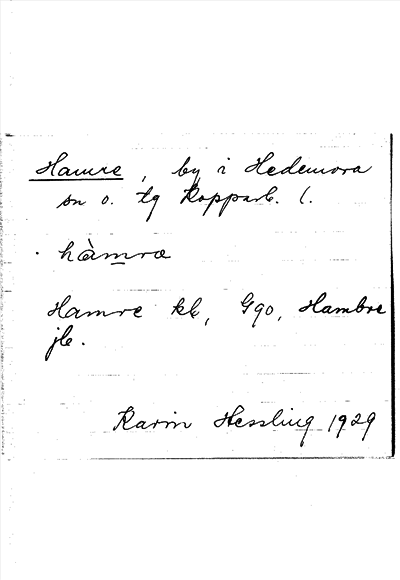 Hamre, by i Hedemora
sn o. tg Kopparb. l.
hàmrα
Hamre kk, Gqo, Hambre
jb.
Karin Hessling 1929